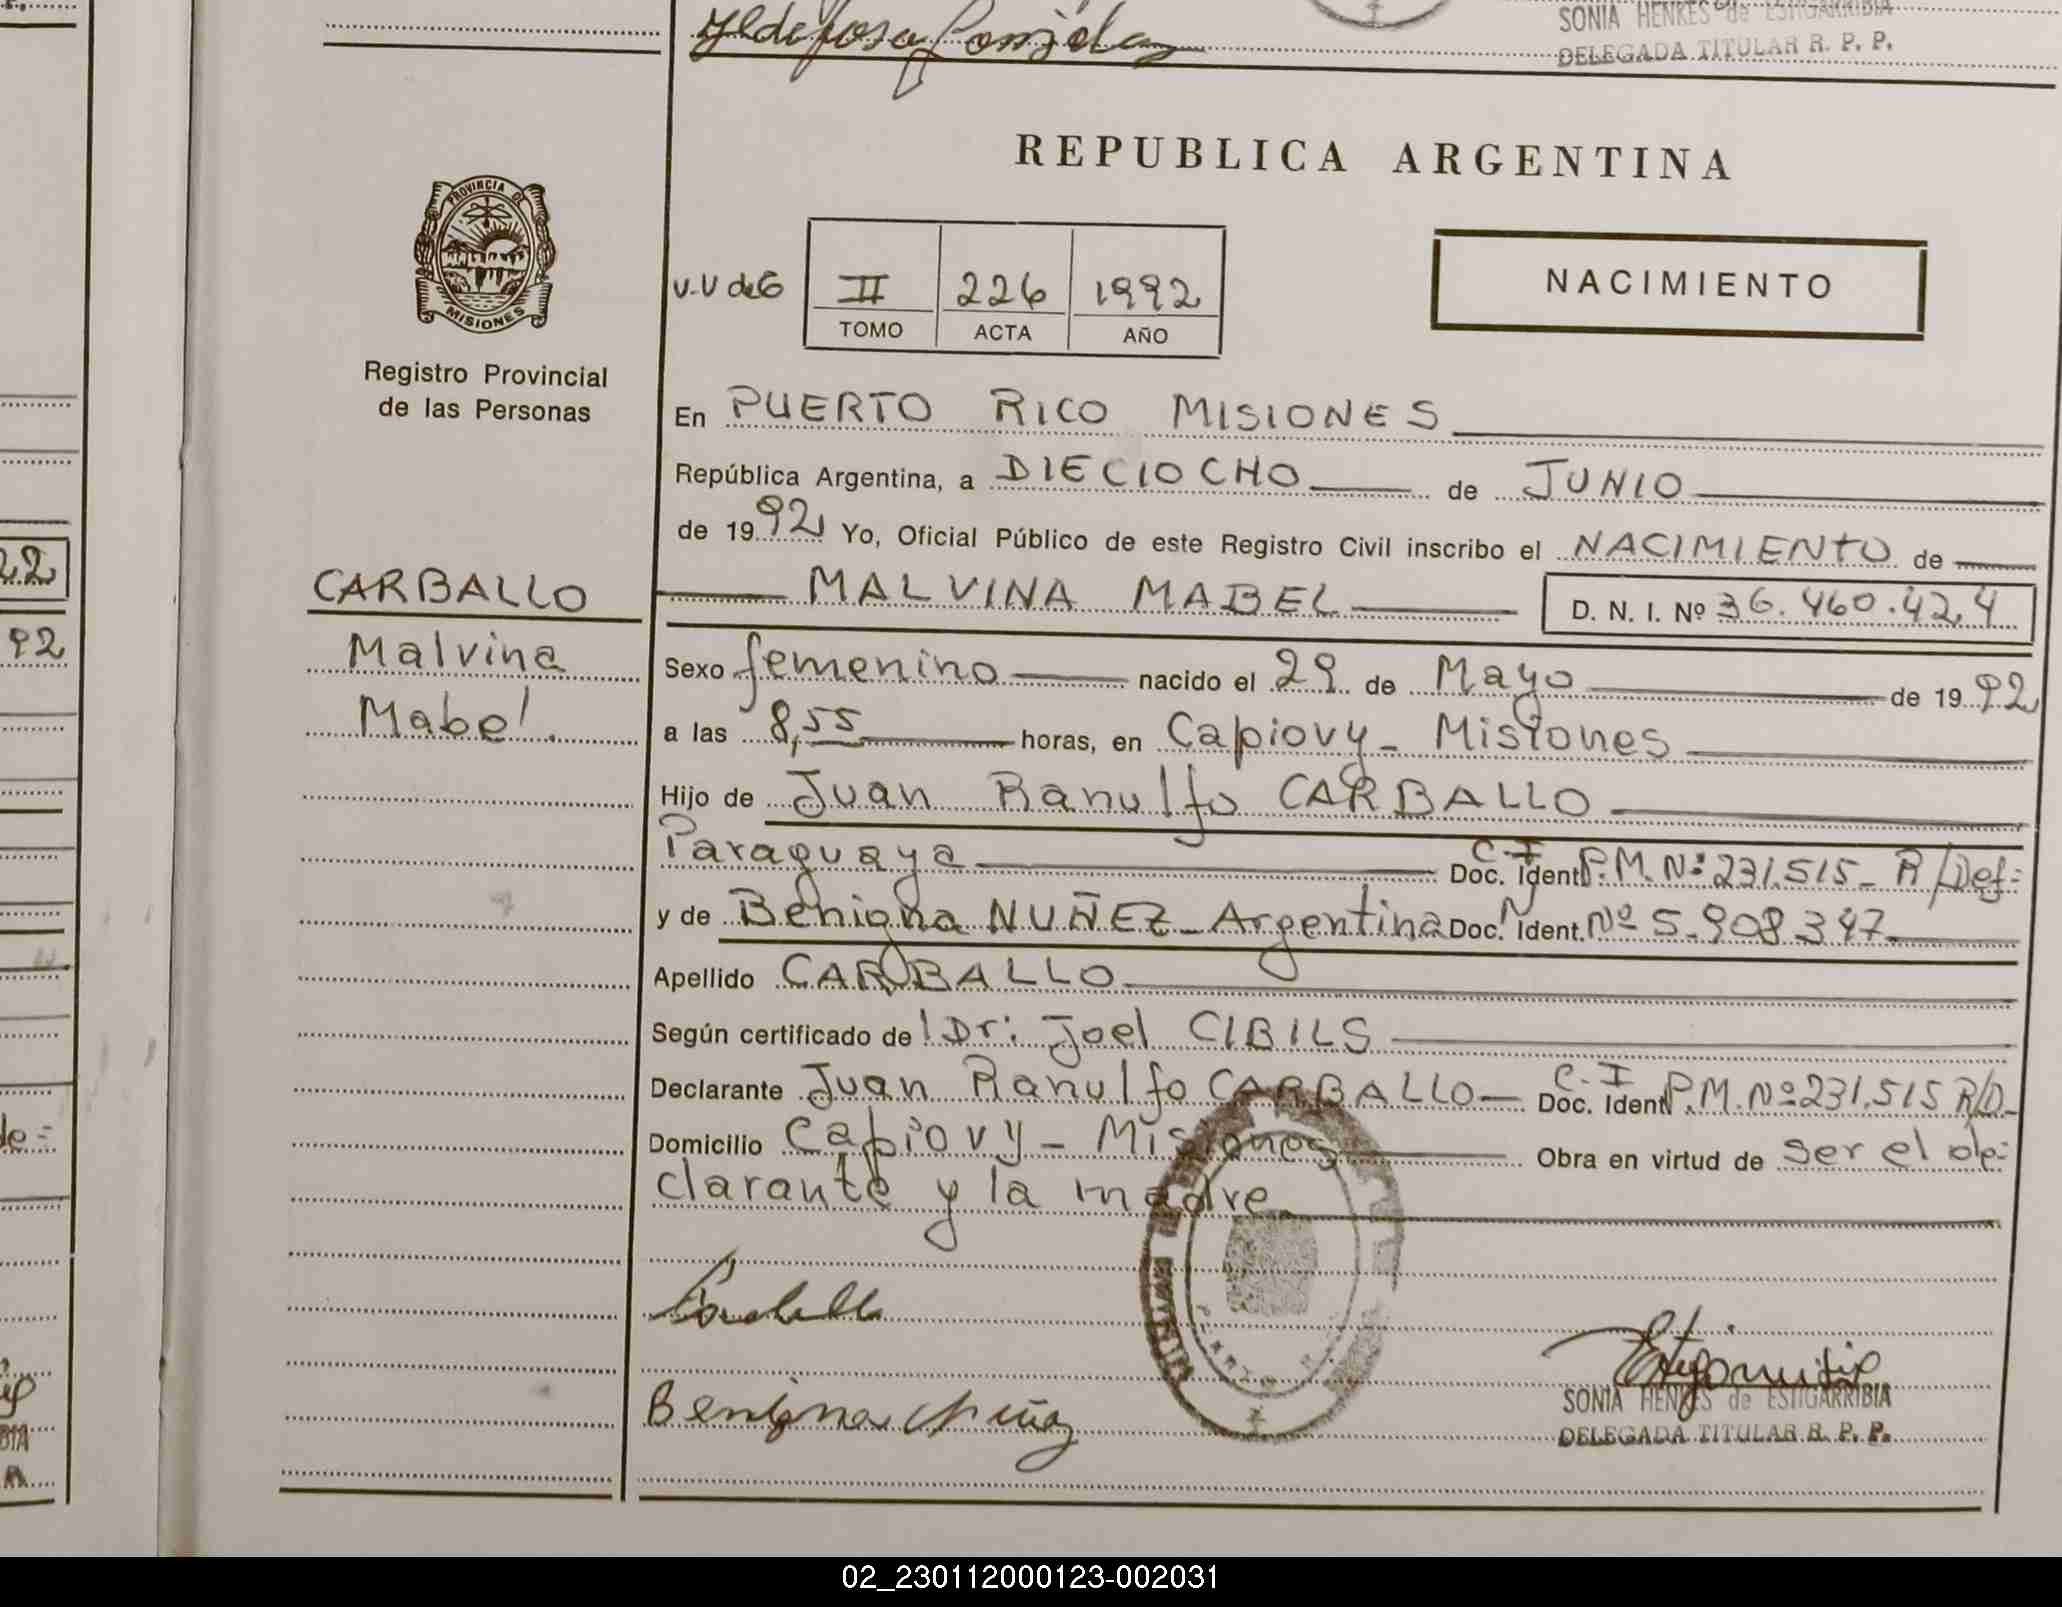 SONIA HENKES de ESTIGARRIBIA
DELEGADA TITULAR R. P. P.
REPUBLICA ARGENTINA
PROVINCIA DE
MISIONES
Registro Provincial
de las Personas
NACIMIENTO
II 226 1992
TOMO ACTA AÑO
En PUERTO RICO MISIONES
República Argentina, a DIECIOCHO de JUNIO
de 1992 Yo, Oficial Público de este Registro Civil inscribo el NACIMIENTO de
CARBALLO
Malvina
Mabel.
MALVINA MABEL D. N. I. Nº 36.460.424
Sexo femenino nacido el 29 de Mayo de 1992
a las 8,55 horas, en Capiovy - Misiones
Hijo de Juan Ranulfo CARBALLO
Paraguaya Doc. Ident. C-I P.M. Nº 231.515 - R/Def=
y de Benigna NUÑEZ - Argentina Doc. Ident. Nº 5.908.347
Apellido CARBALLO
Según certificado de l Dr: Joel CIBILS
Declarante Juan Ranulfo CARBALLO - Doc. Ident. C-I P.M. Nº 231.515 R/D.
Domicilio Capiovy - Misiones Obra en virtud de ser el de=
clarante y la madre
Carballo
Benigna Nuñez
SONIA HENKES de ESTIGARRIBIA
DELEGADA TITULAR R. P. P.
02_230112000123-002031